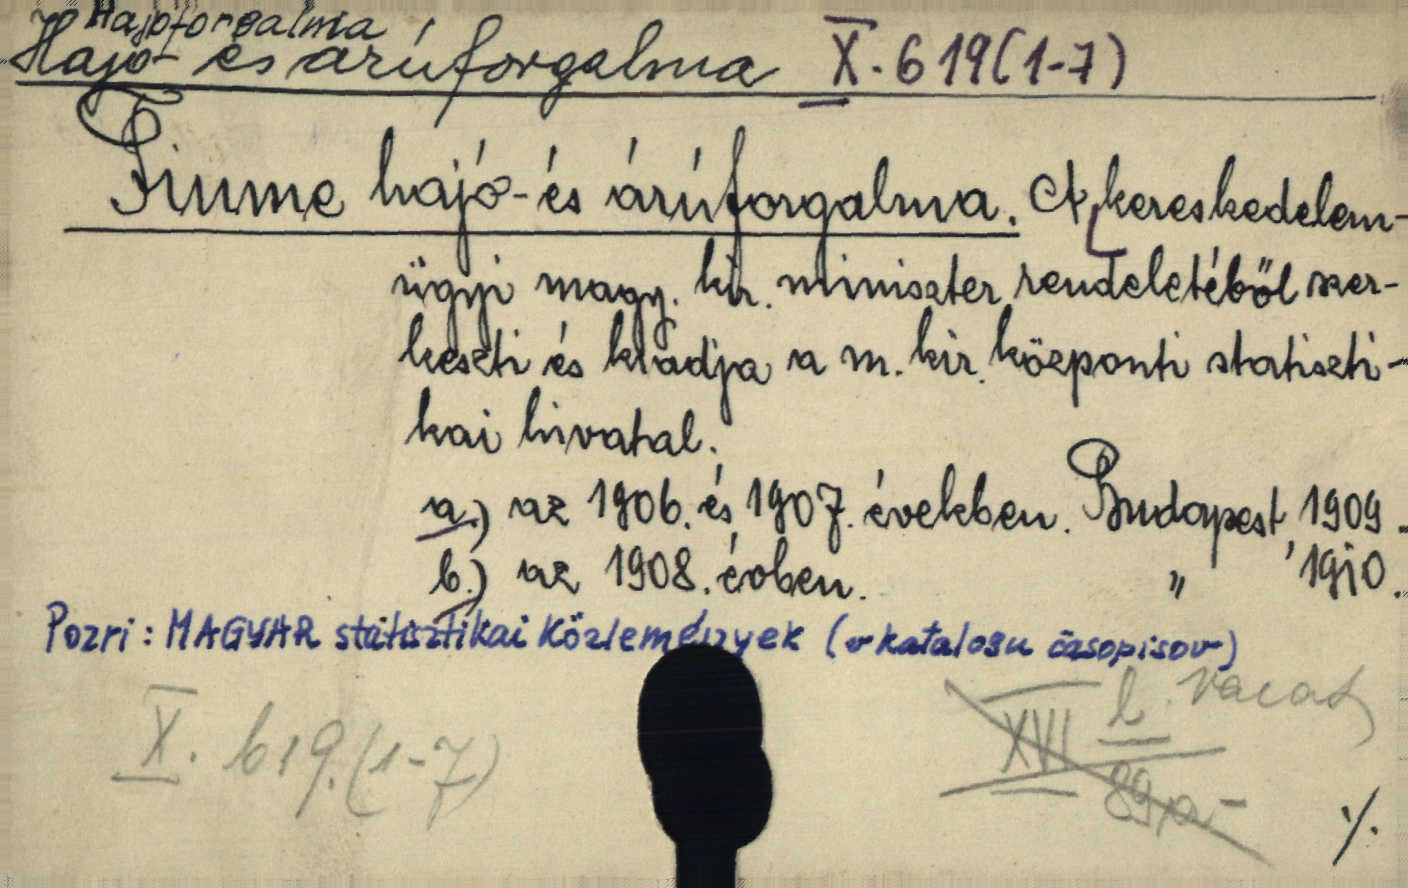 Hajóforgalma
Hajó- és árúforgalma X. 619(1-7)
Fiume hajó- és árúforgalma. A kereskedelem-
ügyi magy. kir. miniszter rendeletéből szer-
keszti és kiadja a m. kir. központi statiszti-
kai hivatal.
a.) az 1906. és 1907. években. Budapest, 1909.
b.) az 1908. évben. " , 1910.
Pozri: MAGYAR statisztikai Közlemények (v katalogu časopisov)
l. vacat
X. 619.(1-7)
XVI
89,a-
%.